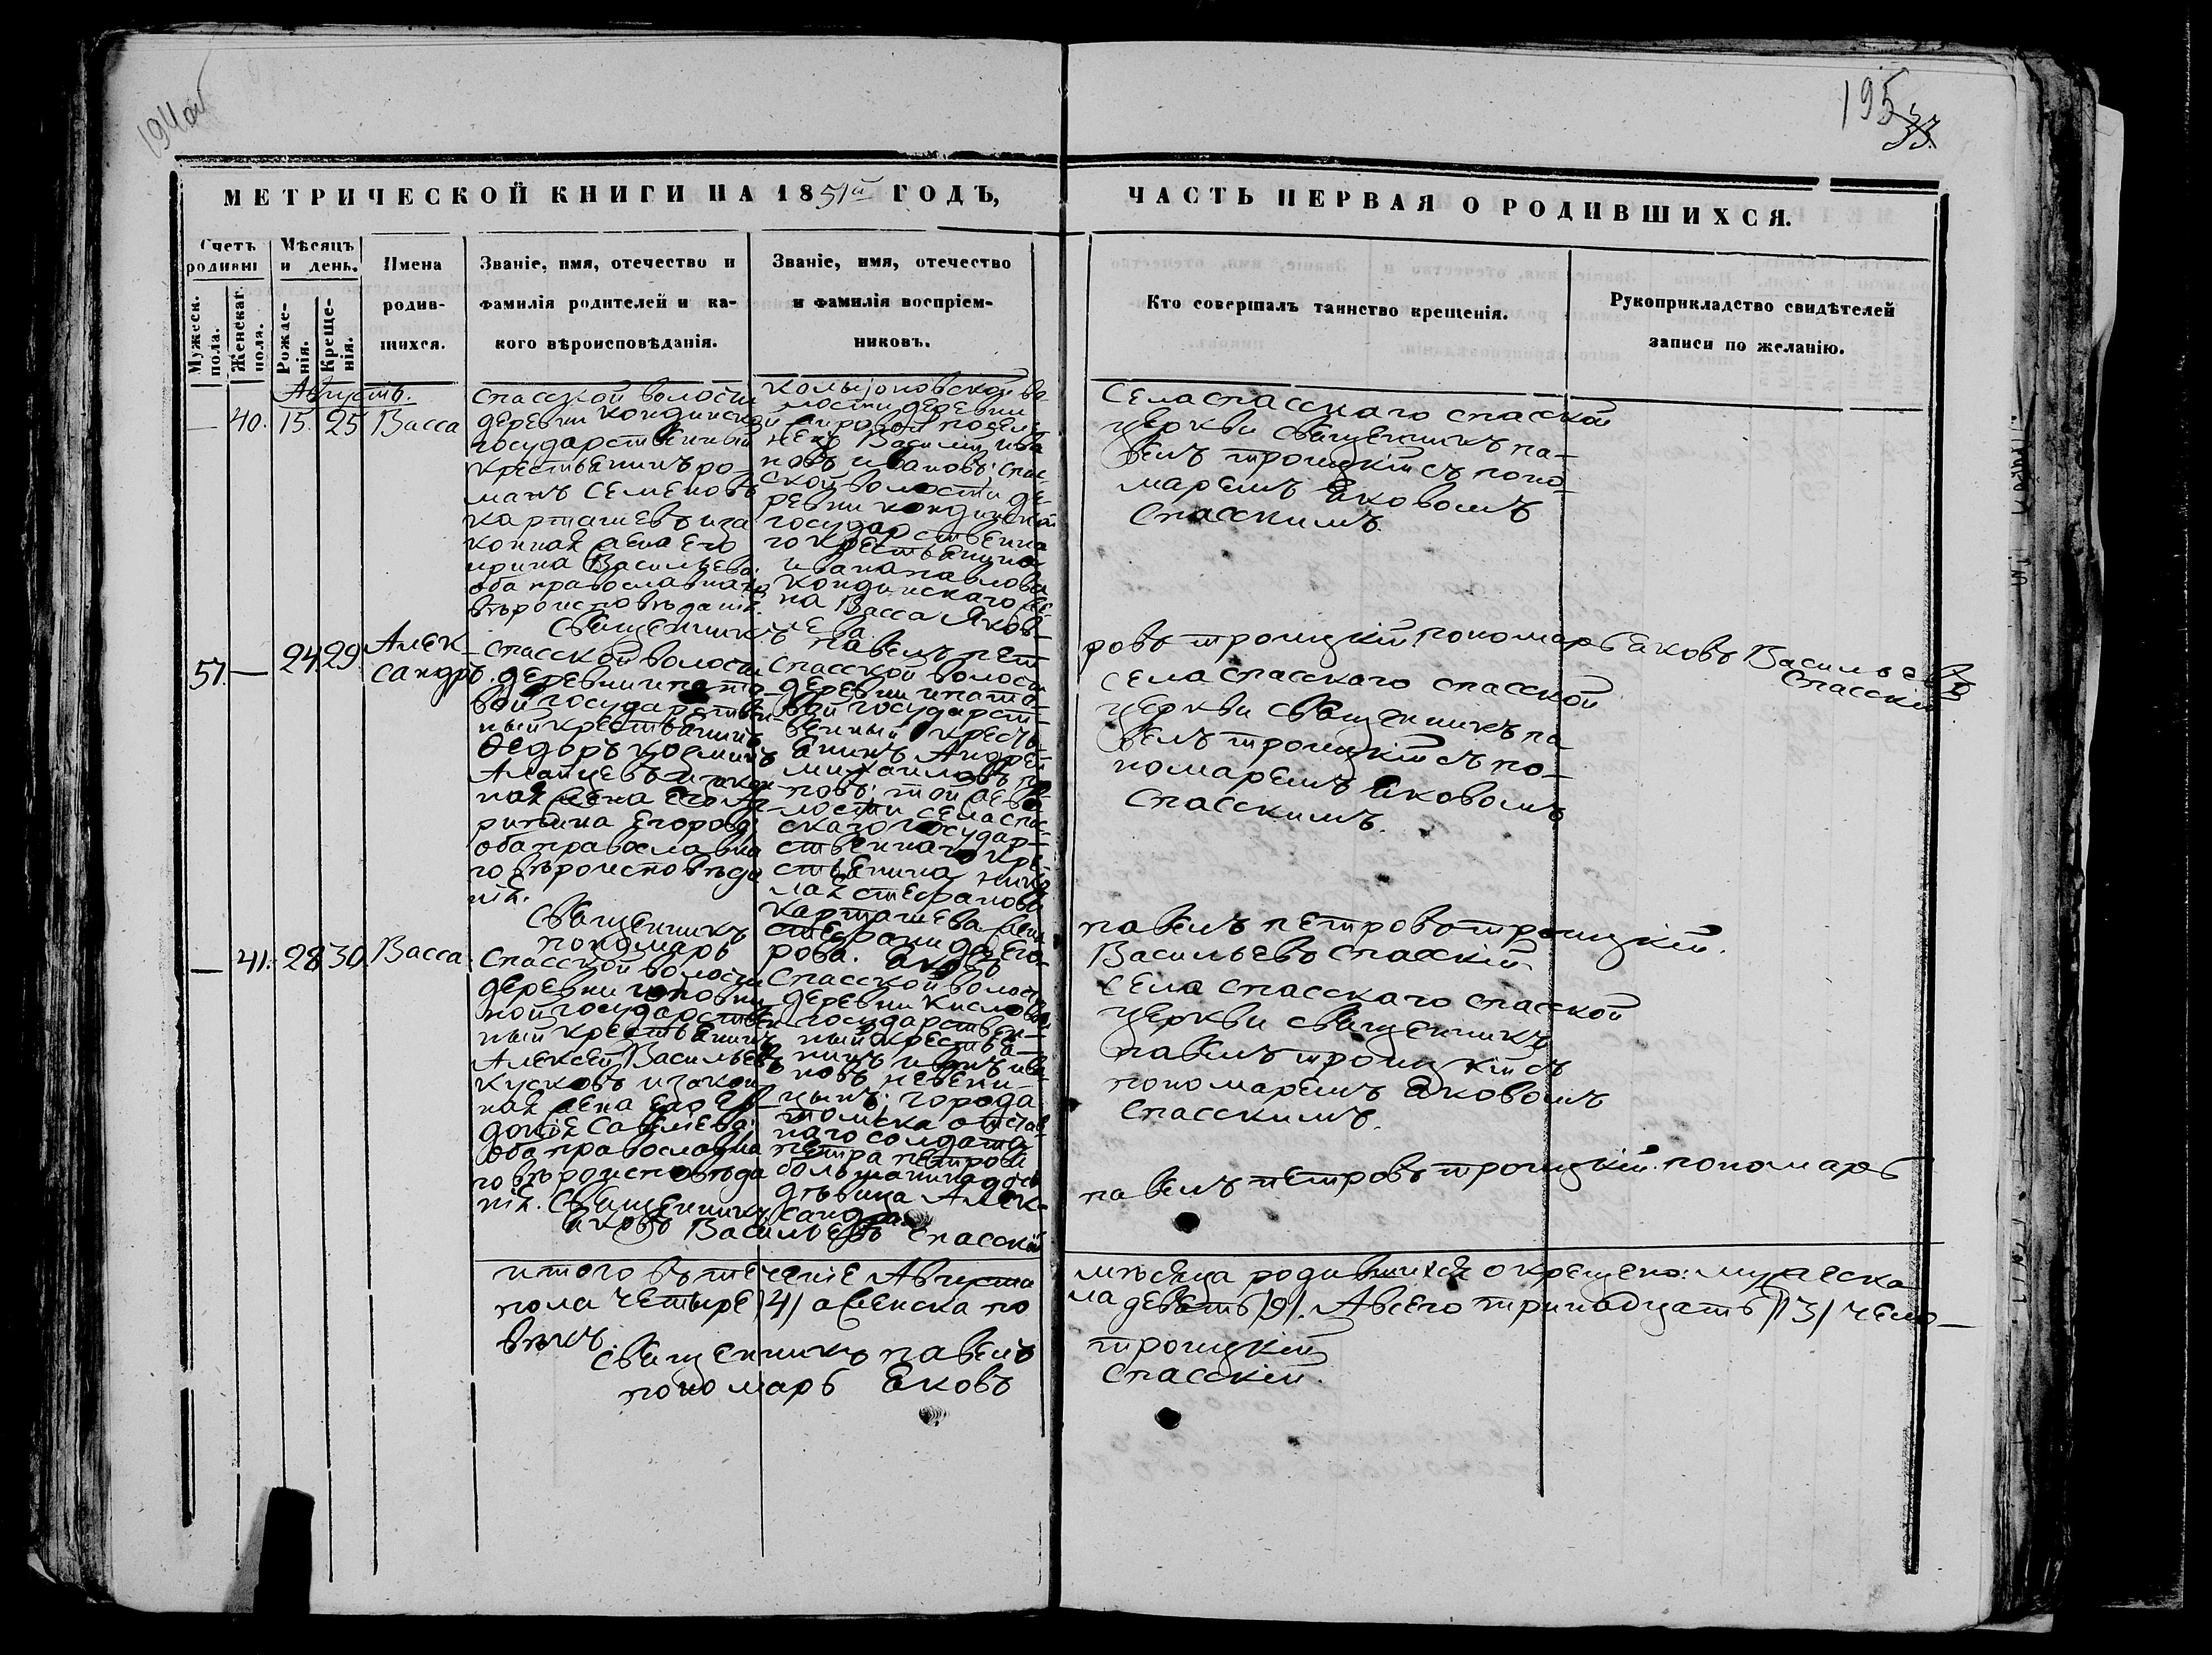 194об
195
33.
МЕТРИЧЕСКОЙ КНИГИ НА 1851й ГОДЪ,
ЧАСТЬ ПЕРВАЯ О РОДИВШИХСЯ.
Счетъ родивш
Мѣсяцъ и день.
Мужеск. пола.
Женскаг. пола.
Рожде-
нія.
Креще-
нія.
Имена
родив-
шихся.
Званіе, имя, отечество и
фамилія родителей и ка-
кого вѣроисповѣданія.
Званіе, имя, отечество
и фамилія воспріем-
никовъ.
Кто совершалъ таинство крещенія.
Рукоприкладство свидѣтелей
записи по желанію.
Августъ.
— 40. 15. 25 Васса
спасской волости
деревни кондинской
государственный
крестьянинъ ро-
манъ Семеновъ
карташевъ и за
конная жена его
ирина Васильева
оба православнаго
вѣроисповѣданія.
во-
лости деревни
Василій ива
новъ ивановъ: спас-
ской волости де-
ревни кондинской
государственна
го крестьянина
ивана павлова
кондинскаго же
на Васса Яков-
лева
села спасскаго спасской
церкви священникъ па-
велъ троицкій съ поно-
маремъ Яковомъ
Спасскимъ.
священникъ павелъ пет
ровъ троицкій пономарь Яковъ Васильевъ
Спасскій
57. — 24. 29. Алек-
сандръ.
спасской волости
деревни ипато-
вой государствен-
ный крестьянинъ
Федоръ козминъ
и закон
ная жена его
Егорова
оба православна
го вѣроисповѣда
нія.
спасской волости
деревни ипато-
вой государст-
венный кресть-
янинъ Андрей
михаиловъ
новъ: той же во
лости села спас-
скаго государ-
ственнаго кре-
стьянина нико
лая стефанова
карташева жена
стефанида Его-
рова.
села спасскаго спасской
церкви священникъ па
велъ троицкій съ по-
номаремъ Яковомъ
спасскимъ.
священникъ
павелъ петровъ троицкій.
пономарь Яковъ
Васильевъ Спасскій
— 41. 28 30. Васса
Спасской волости
деревни
государствен
ный крестьянинъ
Алексей Васильевъ
кусковъ и закон
ная жена его Ев-
докія Савельева
оба православна
го вѣроисповѣда
нія.
Спасской волости
деревни кисловой
государствен-
ный крестья-
нинъ иванъ ива
новъ
цынъ: города
томска отстав-
наго солдата
петра петрова
дочь
дѣвица Алек-
сандра
села спасскаго спасской
церкви священникъ
павелъ троицкій съ
пономаремъ Яковомъ
Спасскимъ.
Священникъ
павелъ петровъ троицкій. пономарь
Яковъ Васильевъ Спасскій
итого въ теченіе Августа
мѣсяца родившихся окрещено: мужеска
пола четыре /4/ а женска по
ла девять /9/. А всего тринадцать /13/ чело-
вѣкъ.
священникъ павелъ
троицкій
пономарь Яковъ
Спасскій.